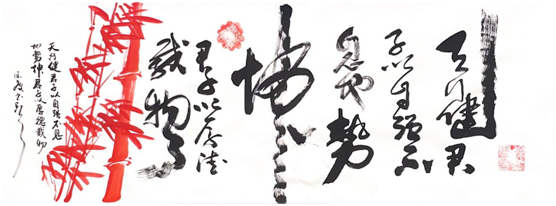 天行健君
子以自强不
息地勢
坤
君子以厚德
載物
天行健君子以自强不息
地勢坤君子以厚德載物